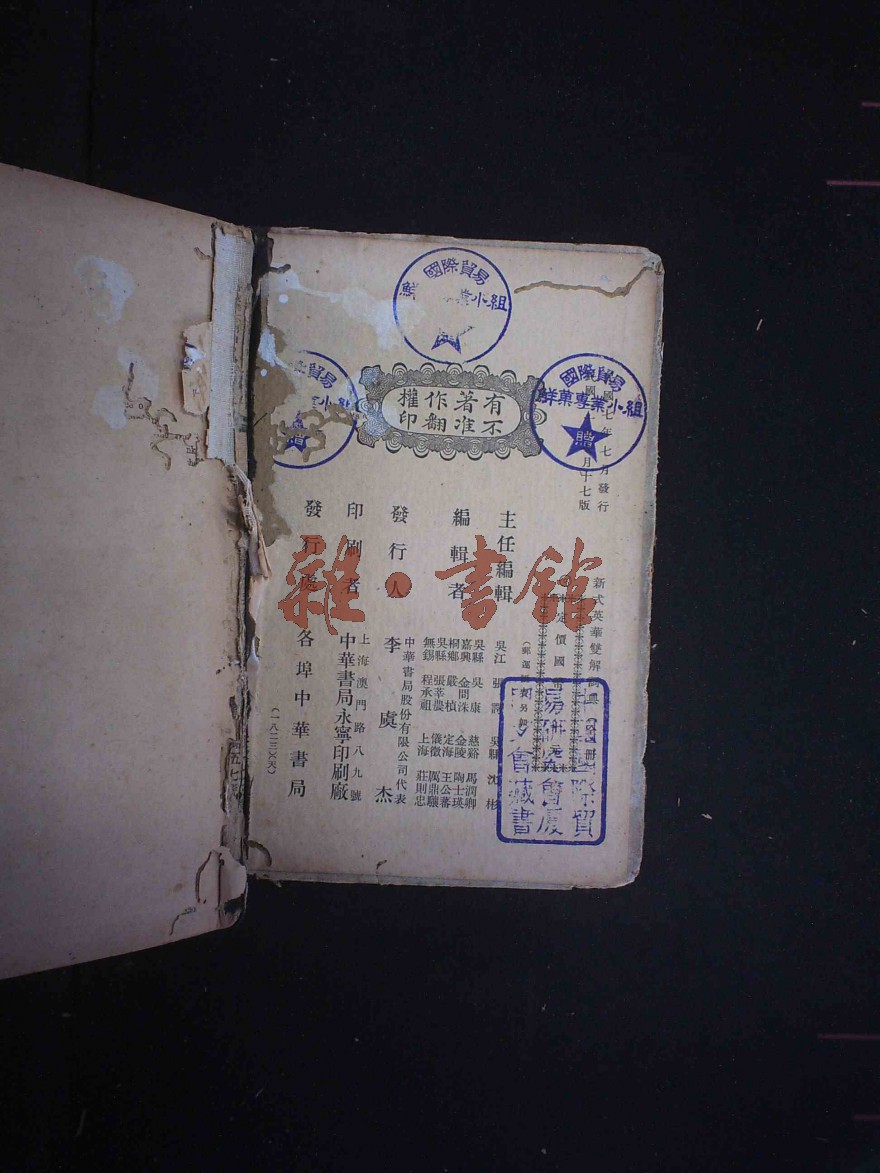 國際貿易
鮮 業小組
國際貿易
鮮菓專業小組
贈
貿易
小組
贈
有著作權
不准翻印
國 七年七月發行
國 月十七版
新式英華雙解詞典
定價國幣
主任編輯
吳江 張諤 吳縣 沈彬
編輯者
吳縣 吳康 慈谿 馬潤卿
嘉興 金問洙 金陵 陶士瑛
桐鄉 嚴楨 定海 王公蕃
吳縣 張莘農 儀徵 厲鼎驤
無錫 程承祖 上海 莊則忠
發行人
中華書局股份有限公司代表
李虞杰
印刷者
上海澳門路八九號
中華書局永寧印刷廠
發行處
各埠中華書局
(一八二三〇)(天)
國際貿
易研究會廈
會藏書
雜·書館